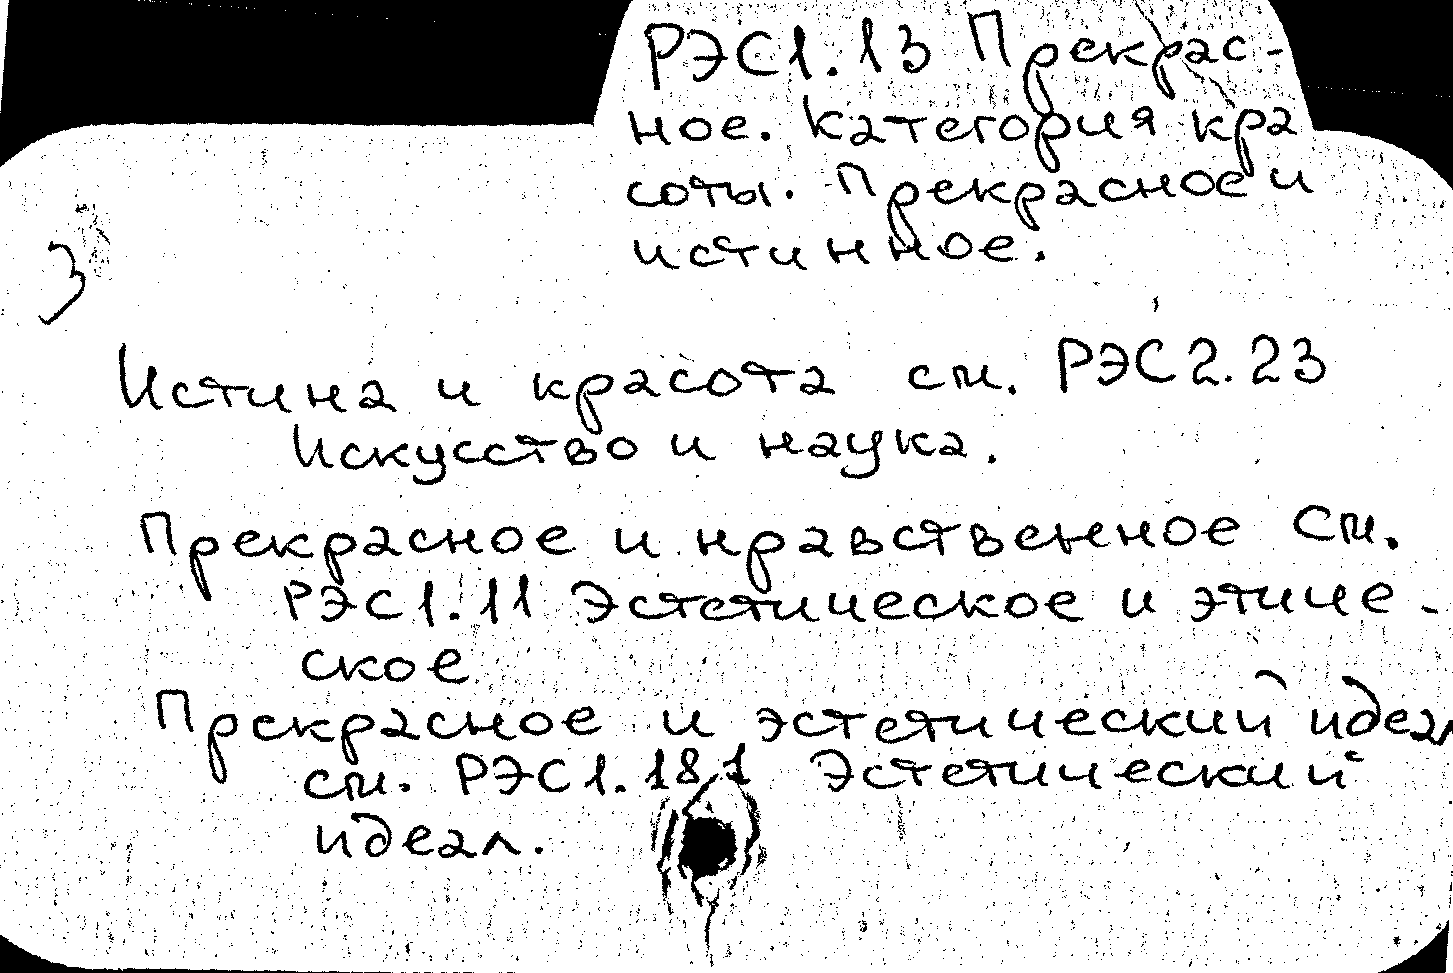 РЭС1.13 Прекрас-
ное. Категория кра
соты. Прекрасное и
истинное.
3
Истина и красота см. РЭС2.23
Искусство и наука.
Прекрасное и нравственное См.
РЭС1.11 Эстетическое и этиче-
ское
Прекрасное и эстетический идеал
см. РЭС1.181 Эстетический
идеал.